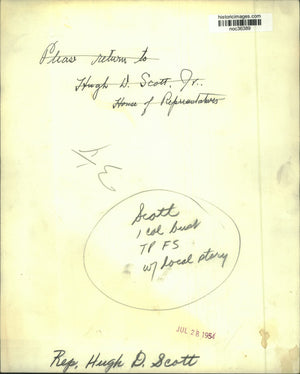 historicimages.com
noc36389
Please return to
Hugh D. Scott, Jr.
House of Representatives
Scott
1 col bust
TP FS
w/ local story
JUL 28 1954
Rep. Hugh D. Scott